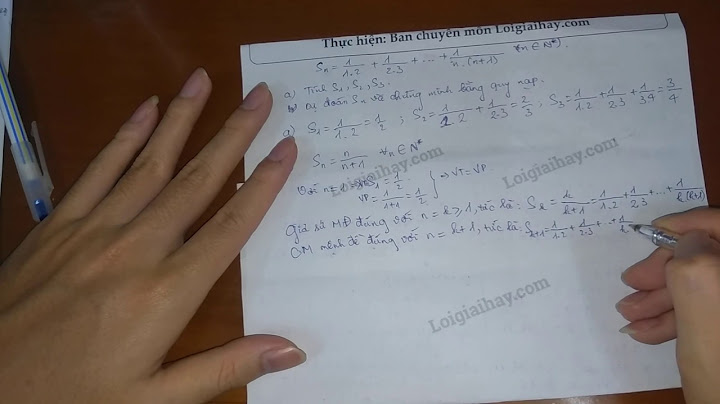 Thực hiện: Ban chuyên môn Loigiaihay.com
Sn = 1/1.2 + 1/2.3 + ... + 1/n.(n+1) ∀n ∈ N*).
a) Tính S1, S2, S3.
b) Dự đoán Sn và chứng minh bằng quy nạp.
a) S1 = 1/1.2 = 1/2 ; S2 = 1/1.2 + 1/2.3 = 2/3 ; S3 = 1/1.2 + 1/2.3 + 1/3.4 = 3/4
Sn = n/n+1 ∀n ∈ N*
Với n = 1 S1 = 1/2
VP = 1/1+1 = 1/2 } ⇒ VT = VP.
Giả sử MĐ đúng với n = k ≥ 1, tức là: Sk = k/k+1 = 1/1.2 + 1/2.3 + ... + 1/k(k+1)
CM mệnh đề đúng với n = k+1, tức là Sk+1 = 1/1.2 + 1/2.3 + ... + 1/k
Loigiaihay.com
Loigiaihay.com
Loigiaihay.com